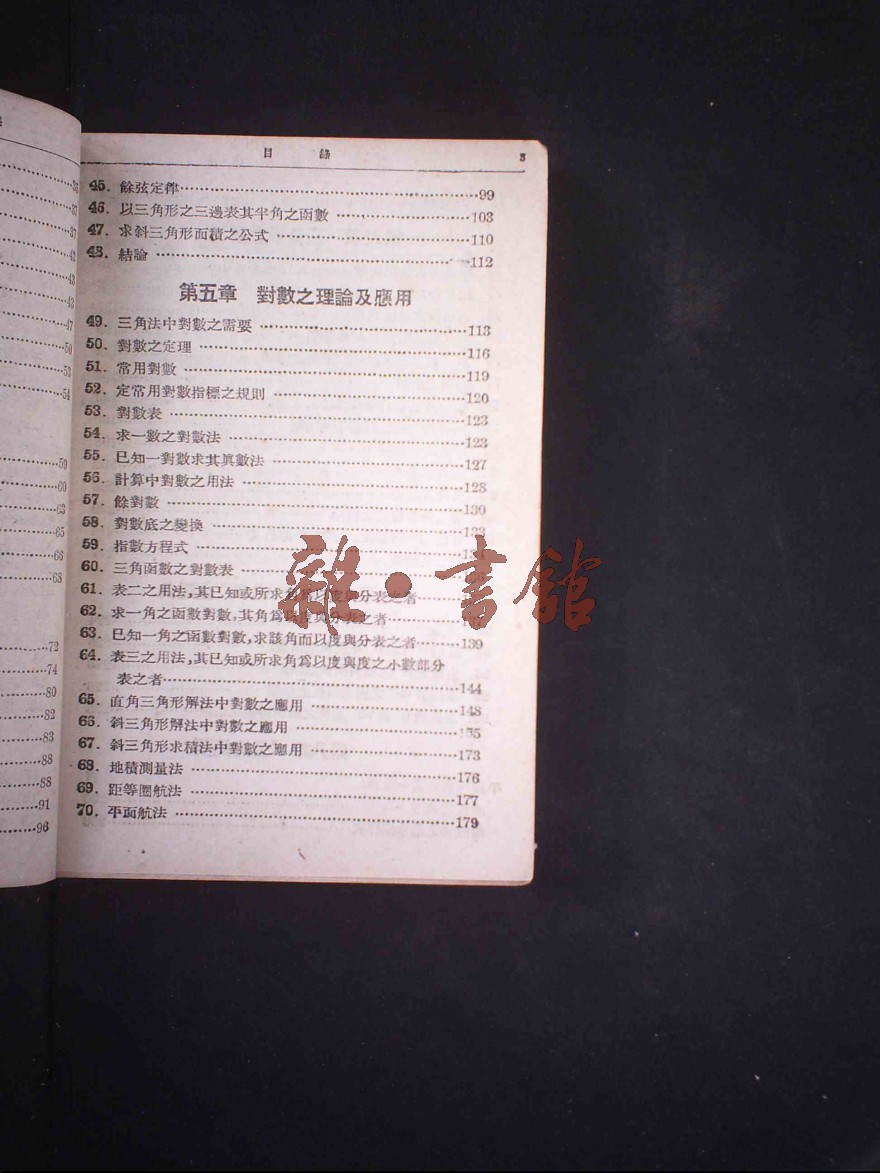 36
37
37
42
43
43
47
50
53
54
59
60
63
65
66
68
72
74
80
82
83
88
88
91
96
目 錄 3
45. 餘弦定律 99
46. 以三角形之三邊表其半角之函數 103
47. 求斜三角形面積之公式 110
48. 結論 112
第五章 對數之理論及應用
49. 三角法中對數之需要 113
50. 對數之定理 116
51. 常用對數 119
52. 定常用對數指標之規則 120
53. 對數表 123
54. 求一數之對數法 123
55. 已知一對數求其眞數法 127
56. 計算中對數之用法 128
57. 餘對數 130
58. 對數底之變換
59. 指數方程式
60. 三角函數之對數表
61. 表二之用法,其已知或所求角爲以度與分表之者
62. 求一角之函數對數,其角爲以度與分表之者
63. 已知一角之函數對數,求該角而以度與分表之者 139
64. 表三之用法,其已知或所求角爲以度與度之小數部分
表之者 144
65. 直角三角形解法中對數之應用 148
66. 斜三角形解法中對數之應用 155
67. 斜三角形求積法中對數之應用 173
68. 地積測量法 176
69. 距等圈航法 177
70. 平面航法 179
雜·書館